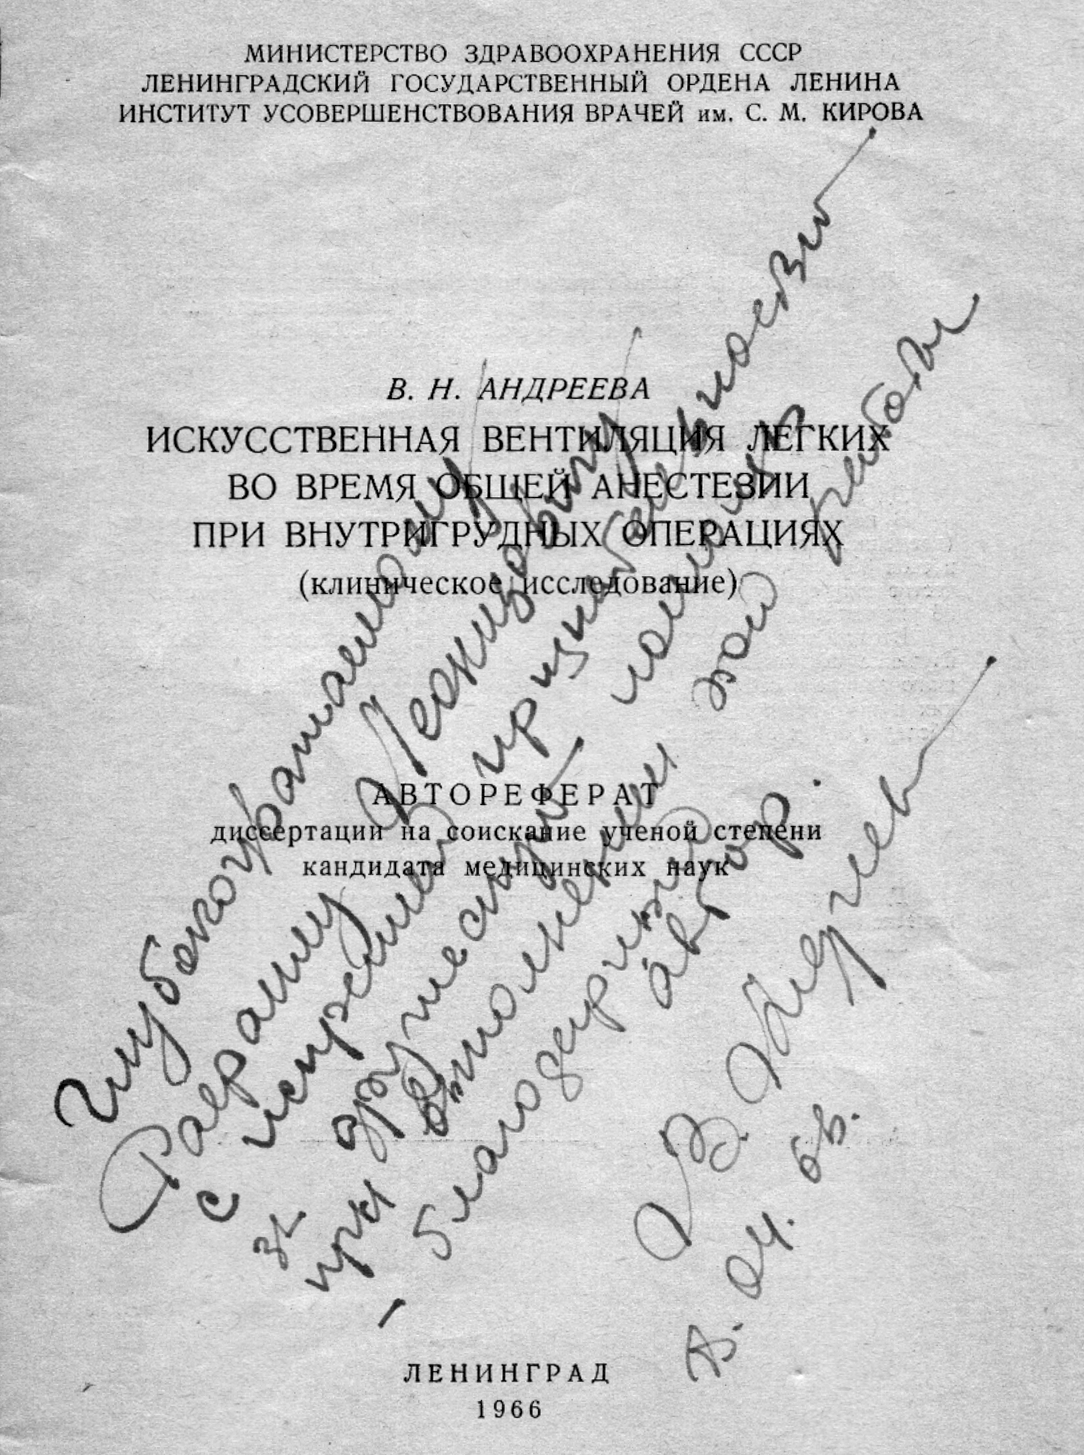 МИНИСТЕРСТВО ЗДРАВООХРАНЕНИЯ СССР
ЛЕНИНГРАДСКИЙ ГОСУДАРСТВЕННЫЙ ОРДЕНА ЛЕНИНА
ИНСТИТУТ УСОВЕРШЕНСТВОВАНИЯ ВРАЧЕЙ им. С. М. КИРОВА
В. Н. АНДРЕЕВА
ИСКУССТВЕННАЯ ВЕНТИЛЯЦИЯ ЛЕГКИХ
ВО ВРЕМЯ ОБЩЕЙ АНЕСТЕЗИИ
ПРИ ВНУТРИГРУДНЫХ ОПЕРАЦИЯХ
(клиническое исследование)
АВТОРЕФЕРАТ
диссертации на соискание ученой степени
кандидата медицинских наук
ЛЕНИНГРАД
1966
Глубокоуважаемому
Леонидовичу
с искренней признательностью
за дружескую помощь
при выполнении этой работы
- благодарный
автор.
В. Андреев